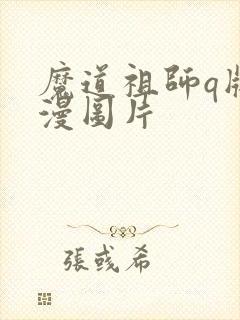 魔道祖師q版
漫圖片
張彧希